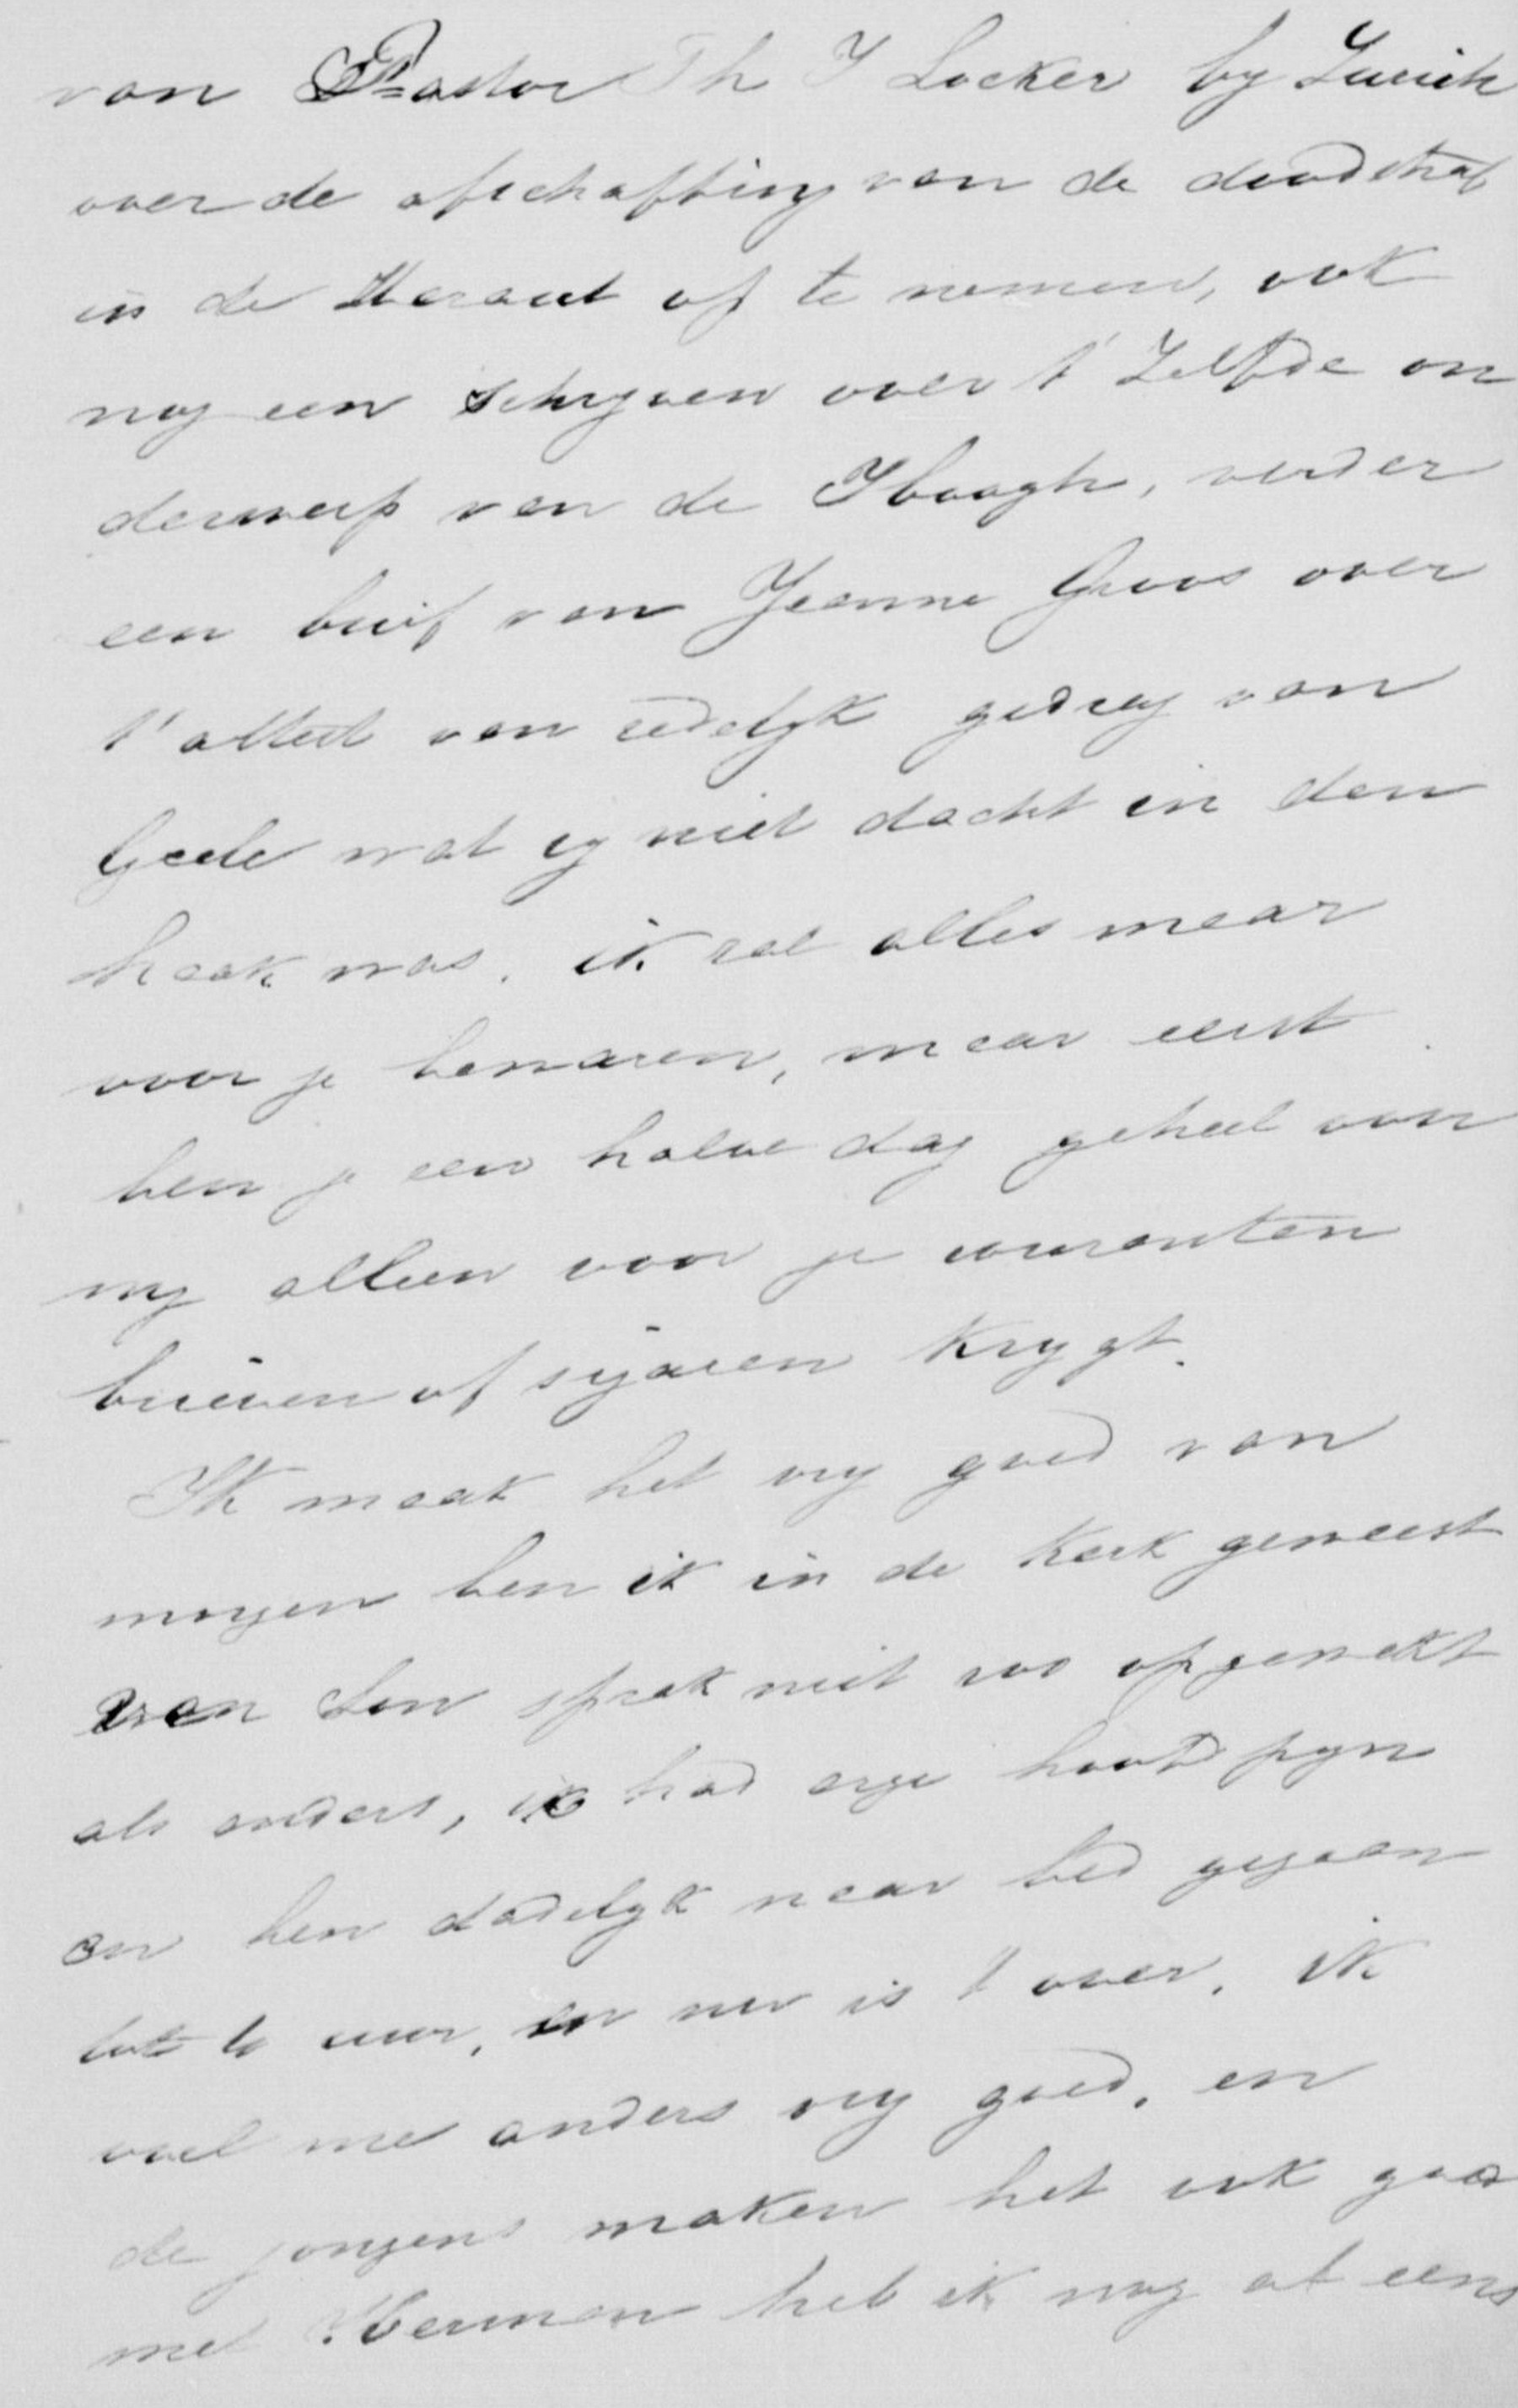 van Pastor Th J Locker by Zurich
over de afschaffing van de doodstraf
in de Heraut op te nemen, ook
nog een schryven over t' Zelfde on
derwerp van de Hoogh, verder
een brief van Jeanne Groos over
t' attest van zedelyk gedrag van
wat zy niet dacht in den
haak was. ik zal alles maar
voor je bewaren, maar eerst
ben je een halve dag geheel van
my alleen voor je couranten
brieven of sigaren krygt.
Ik maak het vry goed van
morgen ben ik in de Kerk geweest
van Son sprak niet zoo opgewekt
als anders, ik had erge hoofdpyn
en ben dadelyk naar bed gegaan
tot uur, en nu is t over. ik
voel me anders vry goed. en
de jongens maken het ook goed
met Herman heb ik nog al eens